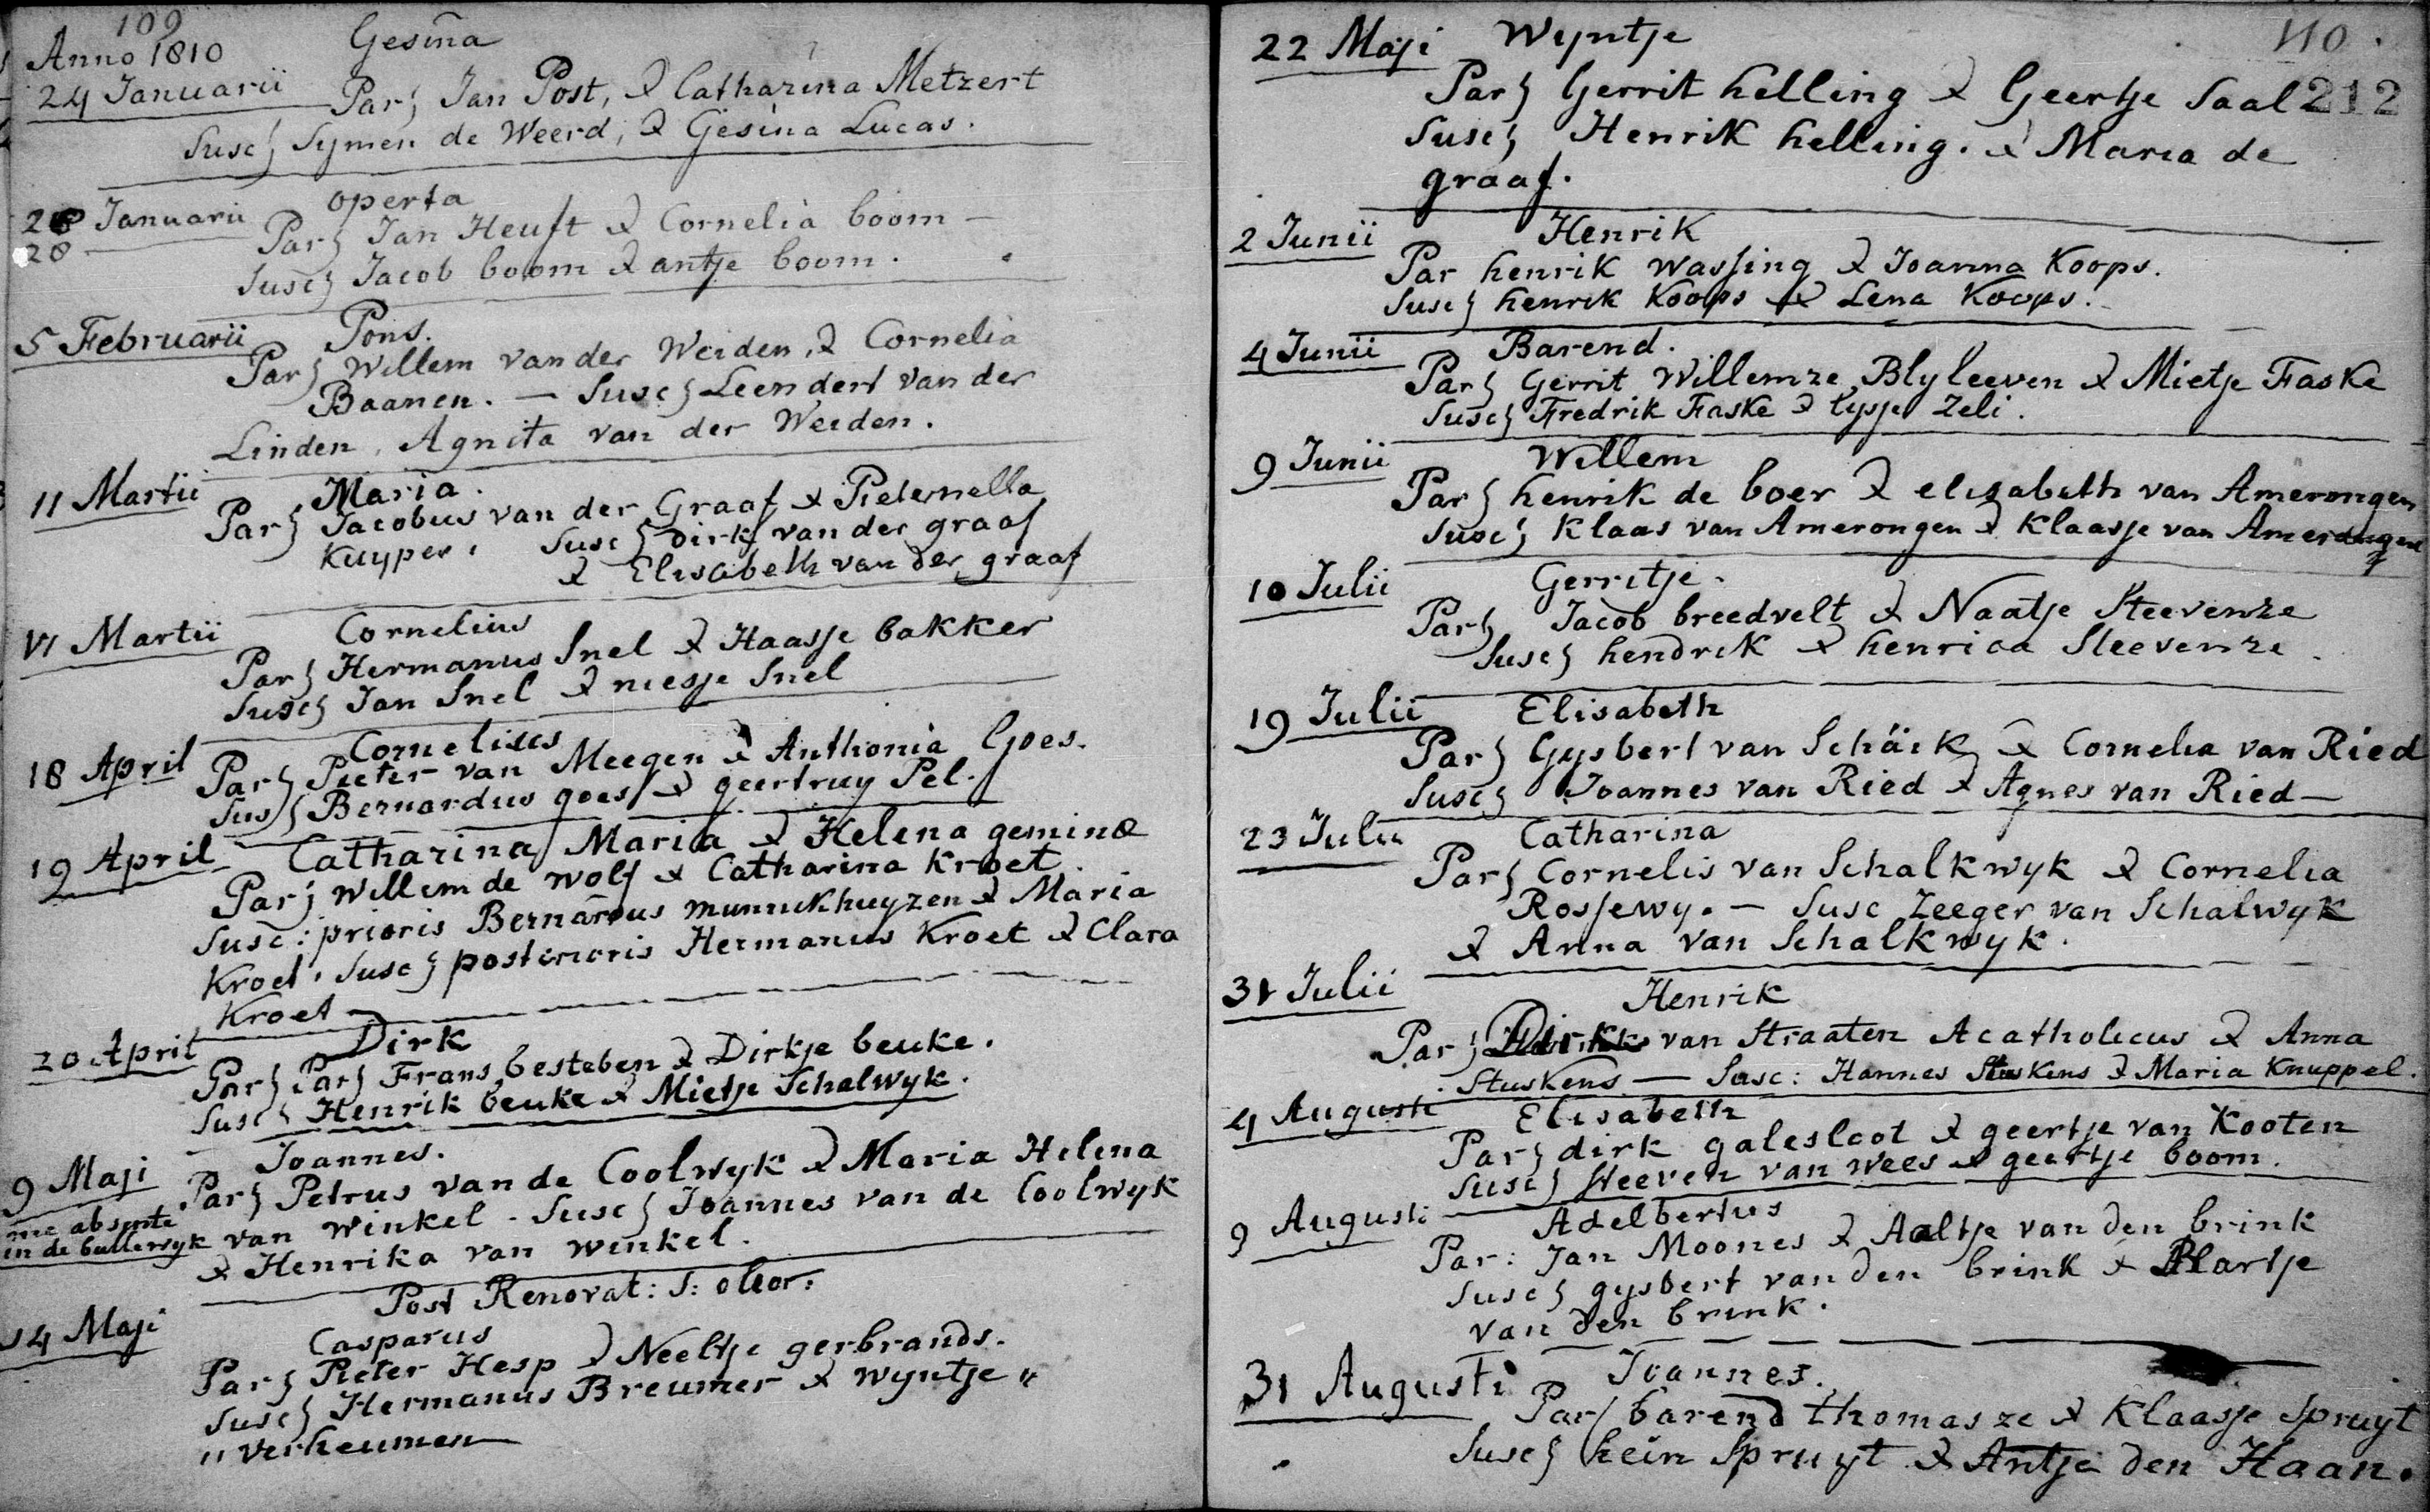 109
Anno 1810
24 Januarii Gesina
Par; Jan Post, & Catharina Metzert
Susc; Symen de Weerd, & Gesina Lucas.
Januarii operta
28
Par; Jan Heuft & Cornelia boom —
Susc; Jacob boom & antje boom.
5 Februarii Pons.
Par; Willem van der Weiden, & Cornelia
Baanen. — Susc; Leendert van der
Linden, Agnita van der Weiden.
11 Martii Maria.
Par; Jacobus van der Graaf & Peternella
Kuyper. Susc; Dirk van der graaf
& Elisabeth van der graaf
Martii Cornelius
Par; Hermanus Snel & Haasje bakker
Susc; Jan Snel & niesje Snel
18 April Cornelius
Par; Pieter van Meegen & Anthonia Goes.
Sus; Bernardus goes & geertruy Pel.
19 April Catharina Maria & Helena geminæ
Par; Willem de Wolf & Catharina Kroet.
Susc: prioris Bernardus munnikhuyzen & Maria
Kroet. Susc; posterioris Hermanus Kroet & Clara
Kroet —
20 April Dirk
Par; Par; Frans besteben & Dirkje beuke.
Susc; Henrik beuke & Mietje Schalwyk.
9 Maji Joannes.
Par; Petrus van de Coolwyk & Maria Helena
me absente
in de bullewyk van Winkel. Susc; Joannes van de Coolwyk
& Henrika van Winkel.
Post Renovat: S: oleor:
14 Maji Casparus
Par; Pieter Hesp & Neeltje gerbrands.
Susc; Hermanus Breumer & Wyntje "
" Verheumen
110.
22 Maji Wyntje
Par; Gerrit helling & Geertje Saal 212
Susc; Henrik helling. & Maria de
graaf.
2 Junii Henrik
Par henrik Wassing & Joanna Koops.
Susc; henrik Koops & Lena Koops.
4 Junii Barend.
Par; Gerrit Willemze Blyleeven & Mietje Faske
Susc; Fredrik Faske & lysje Zeli.
9 Junii Willem
Par; henrik de boer & elisabeth van Amerongen
Susc; Klaas van Amerongen & Klaasje van Amerongen
10 Julii Gerritje.
Par; Jacob breedvelt & Naatje Steevenze
Susc; hendrik & henrica Steevenze.
19 Julii Elisabeth
Par; Gysbert van Schäik & Cornelia van Ried
Susc; Joannes van Ried & Agnes van Ried —
23 Julii Catharina
Par; Cornelis van Schalkwyk & Cornelia
Rossewy. — Susc Zeeger van Schalwyk
& Anna van Schalkwyk.
31 Julii Henrik
Par; Dirk van Straaten Acatholicus & Anna
Stuskens — Susc: Hannes Stuskens & Maria Knuppel.
4 Augusti Elisabeth
Par; dirk galesloot & geertje van Kooten
Susc; Steeven van Wees & geertje boom.
9 Augusti Adelbertus
Par: Jan Moones & Aaltje van den brink
Susc; gysbert van den brink & Maartje
van den brink.
31 Augusti Joannes.
Par; barend thomasze & Klaasje Spruyt
Susc; hein Spruyt & Antje den Haan.